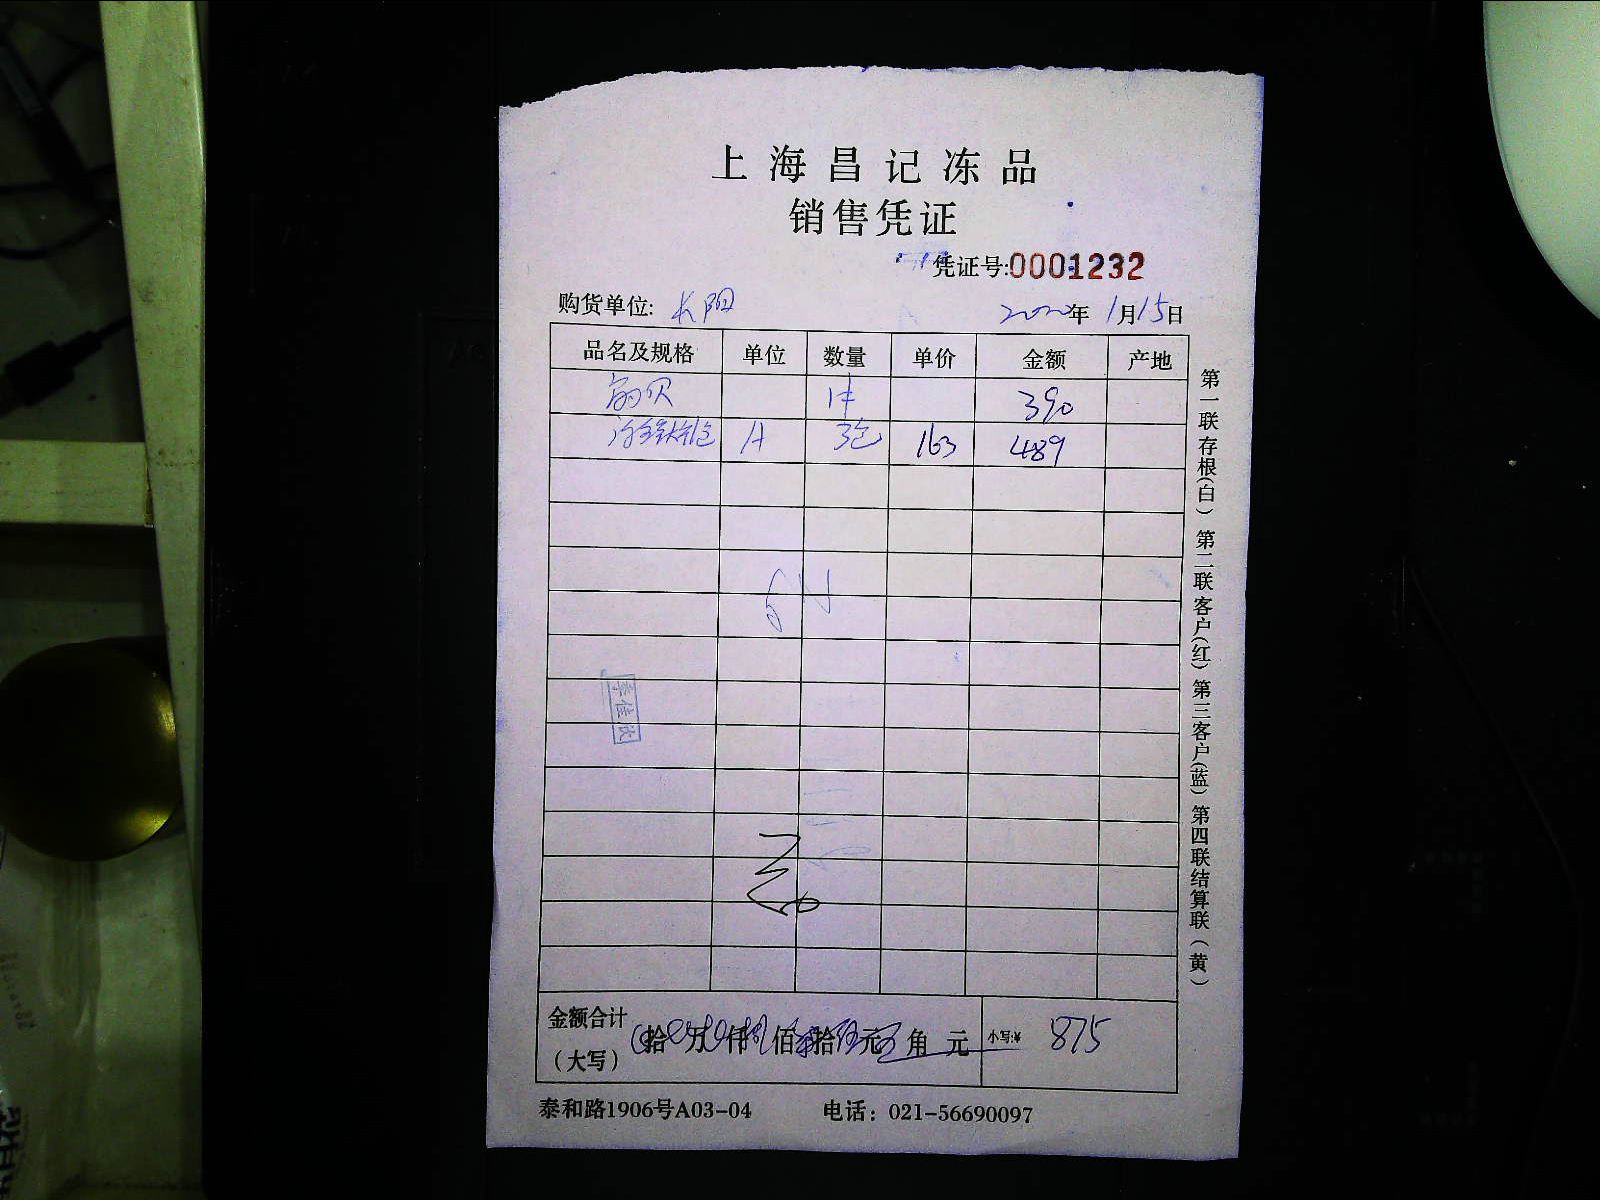 上海昌记冻品
销售凭证
凭证号:0001232
购货单位: 长阳
2020年 1月15日
品名及规格 单位 数量 单价 金额 产地
扇贝 1件 390
A 3包 163 489
李佳欢
金额合计 拾 万 仟 佰 拾 元 角 元 小写:¥ 875
(大写)
泰和路1906号A03-04 电话: 021-56690097
第一联存根(白) 第二联客户(红) 第三客户(蓝) 第四联结算联(黄)